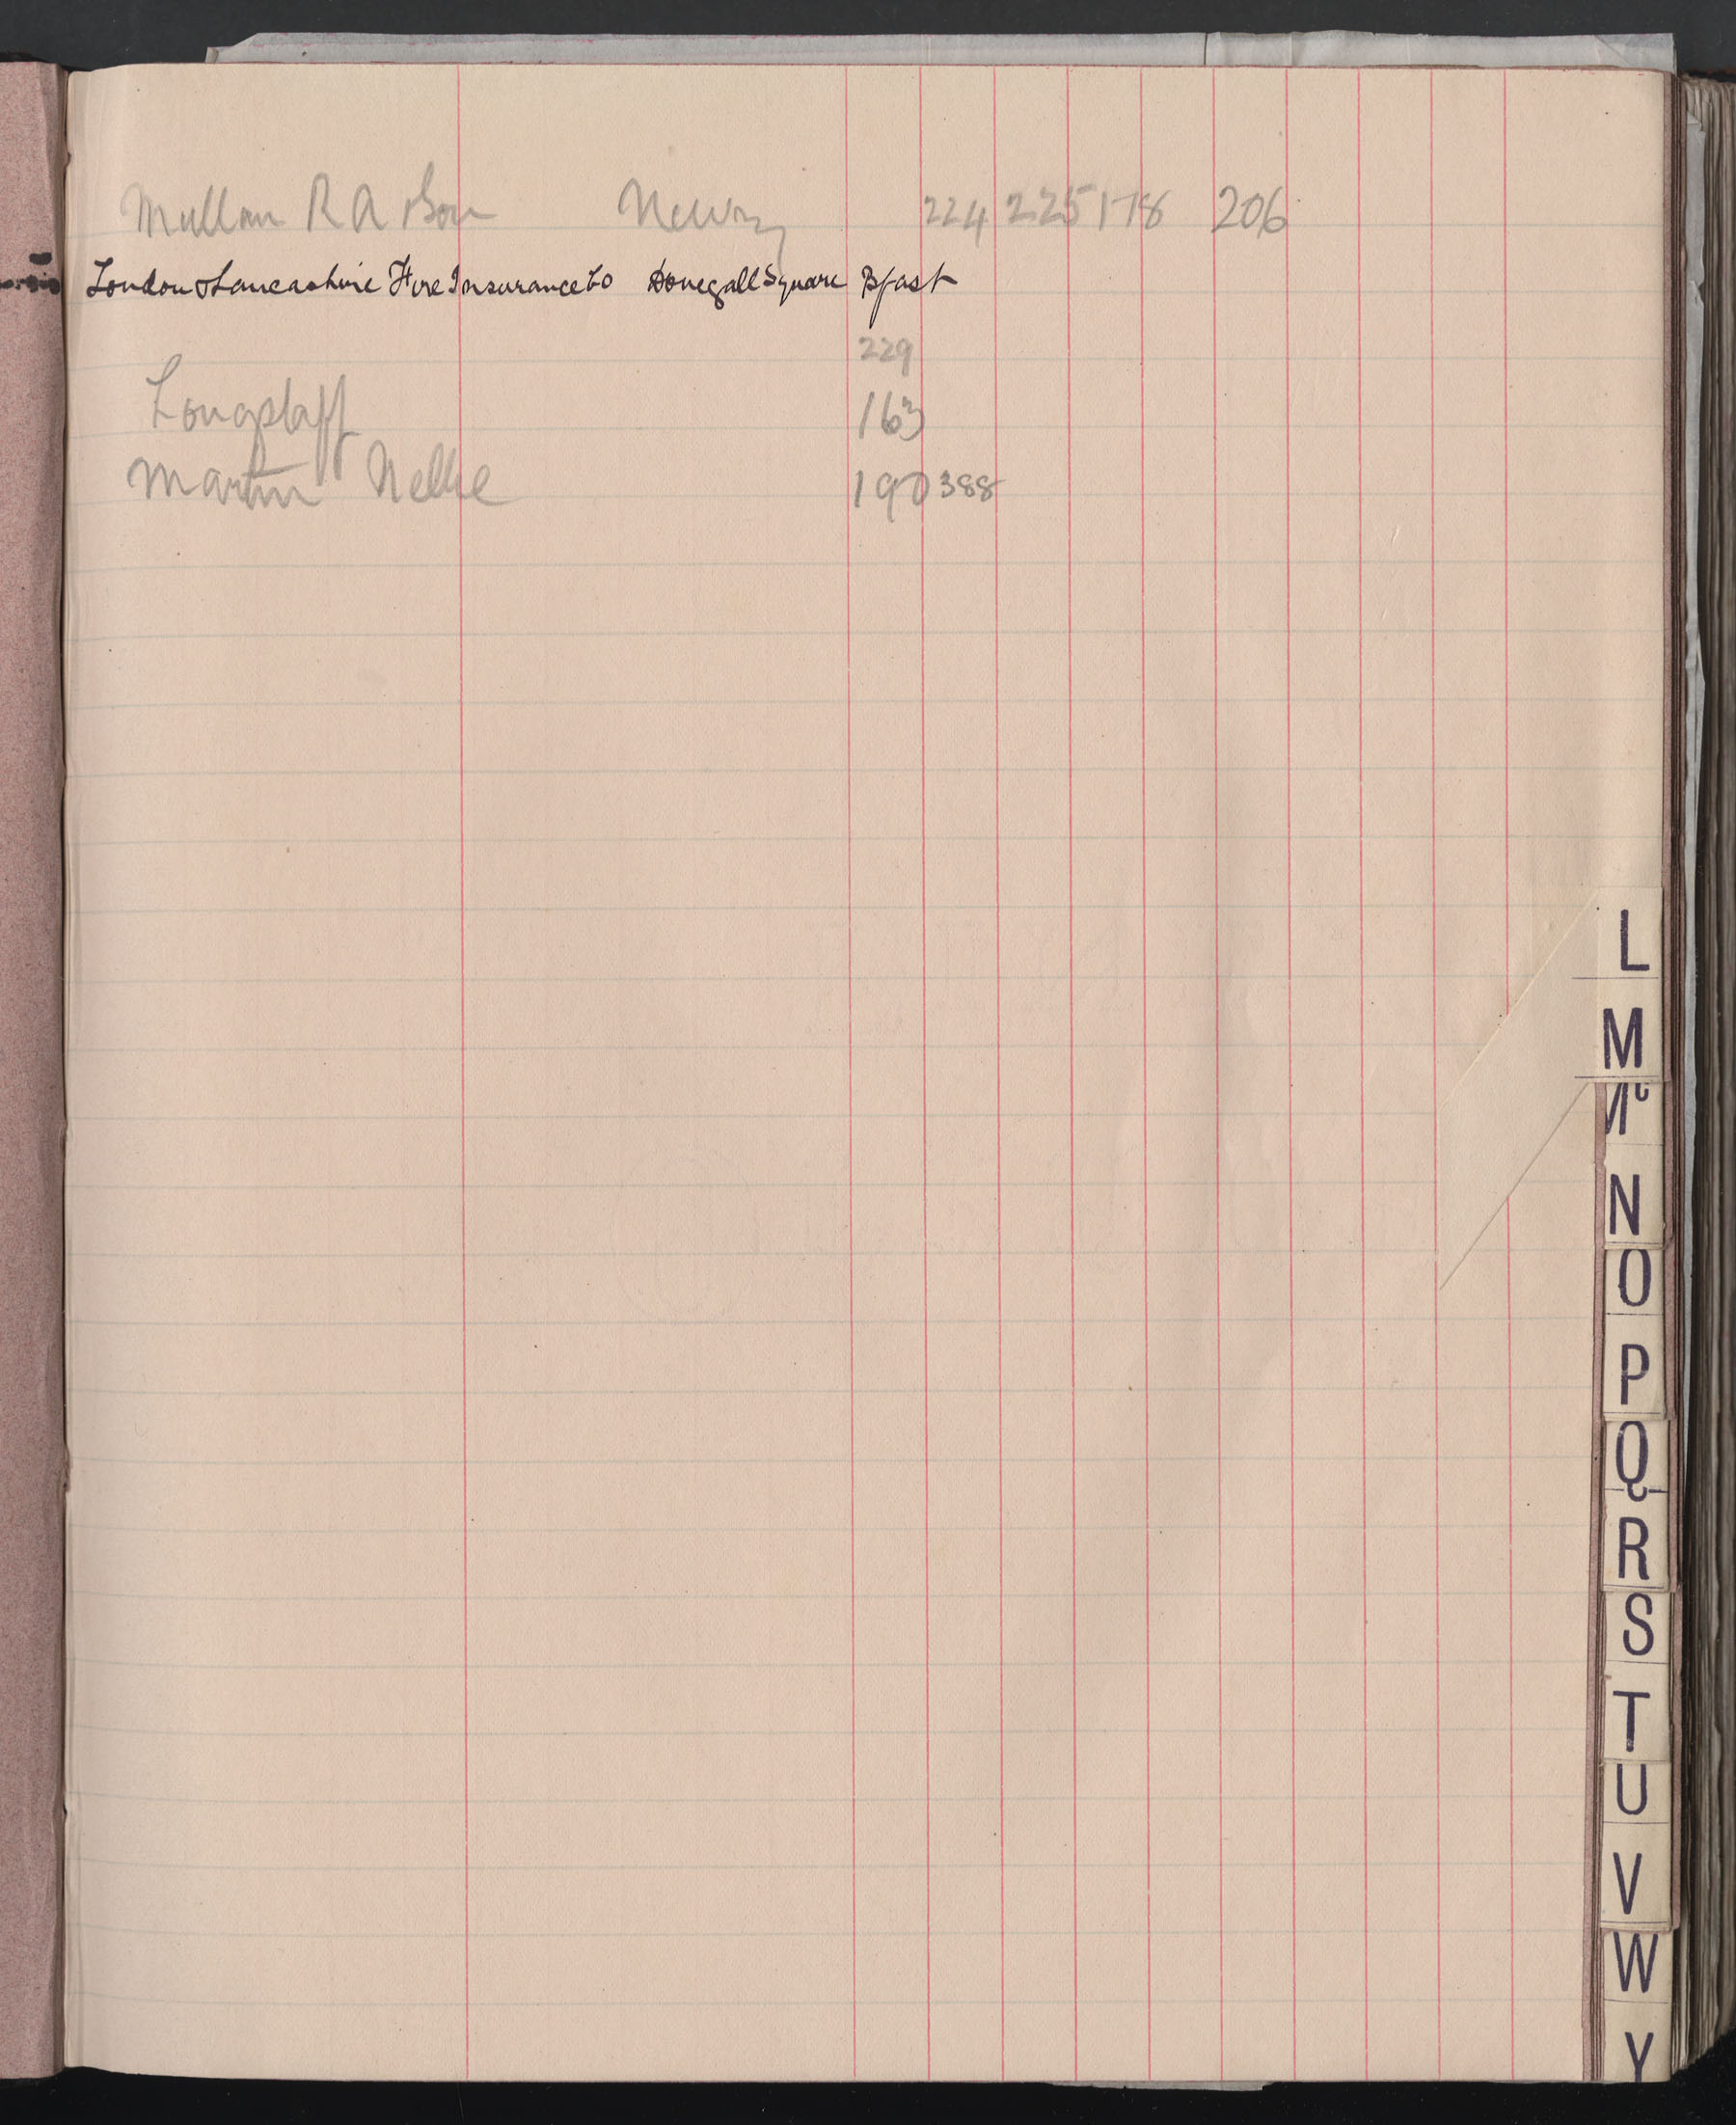 Mullan R A & Son Newry 224 225 178 206
London & Lancashire Fire Insurance Co Donegall Square Bfast
229
Longstaff 163
Martin Nellie 190 388
L
M
Mc
N
O
P
Q
R
S
T
U
V
W
Y